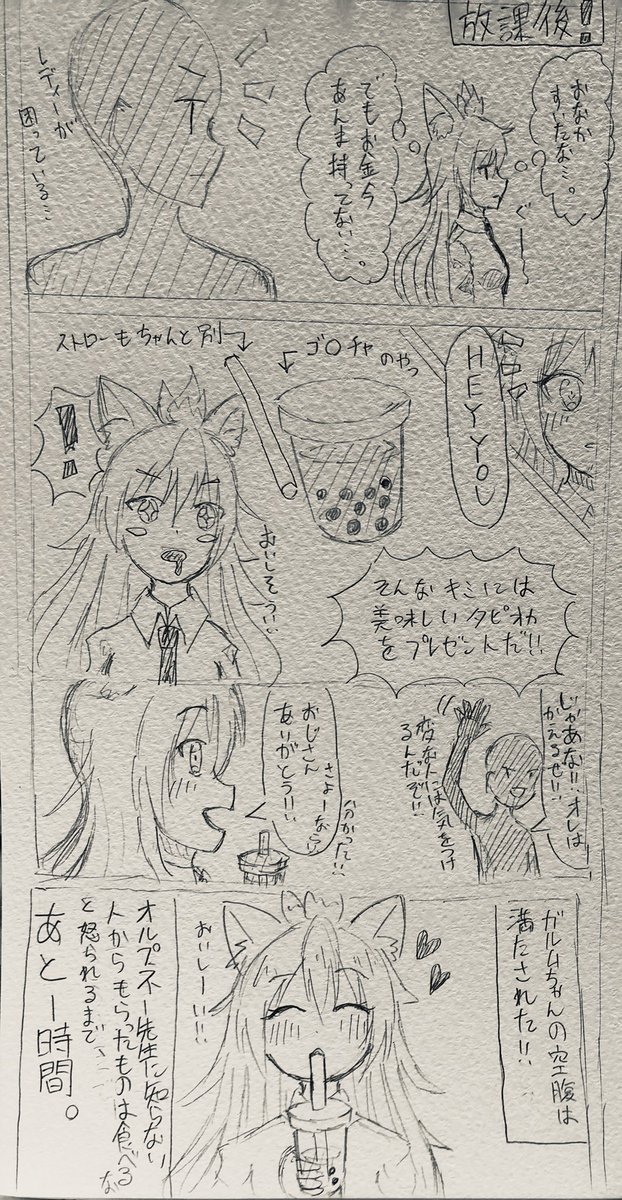 放課後!
おなか
すいたな…。
ぐー〜
でもお金今
あんま持ってない…。
レディーが
困っている…
HEY YOU
ゴ〇チャ
のやつ
ストローもちゃんと別
!!
おいしそう…
そんなキミには
美味しいタピオカ
をプレゼントだ!!
じゃあな!!オレは
かえるぜ!!
変な人には気をつけ
るんだぞ!!
分かった!!
さよーなら!
おじさん
ありがとう!!
ガルムちゃんの空腹は
満たされた!!
おいしーい!!
オルプネー先生に知らない
人からもらったものは食べるな
と怒られるまで
あと一時間。